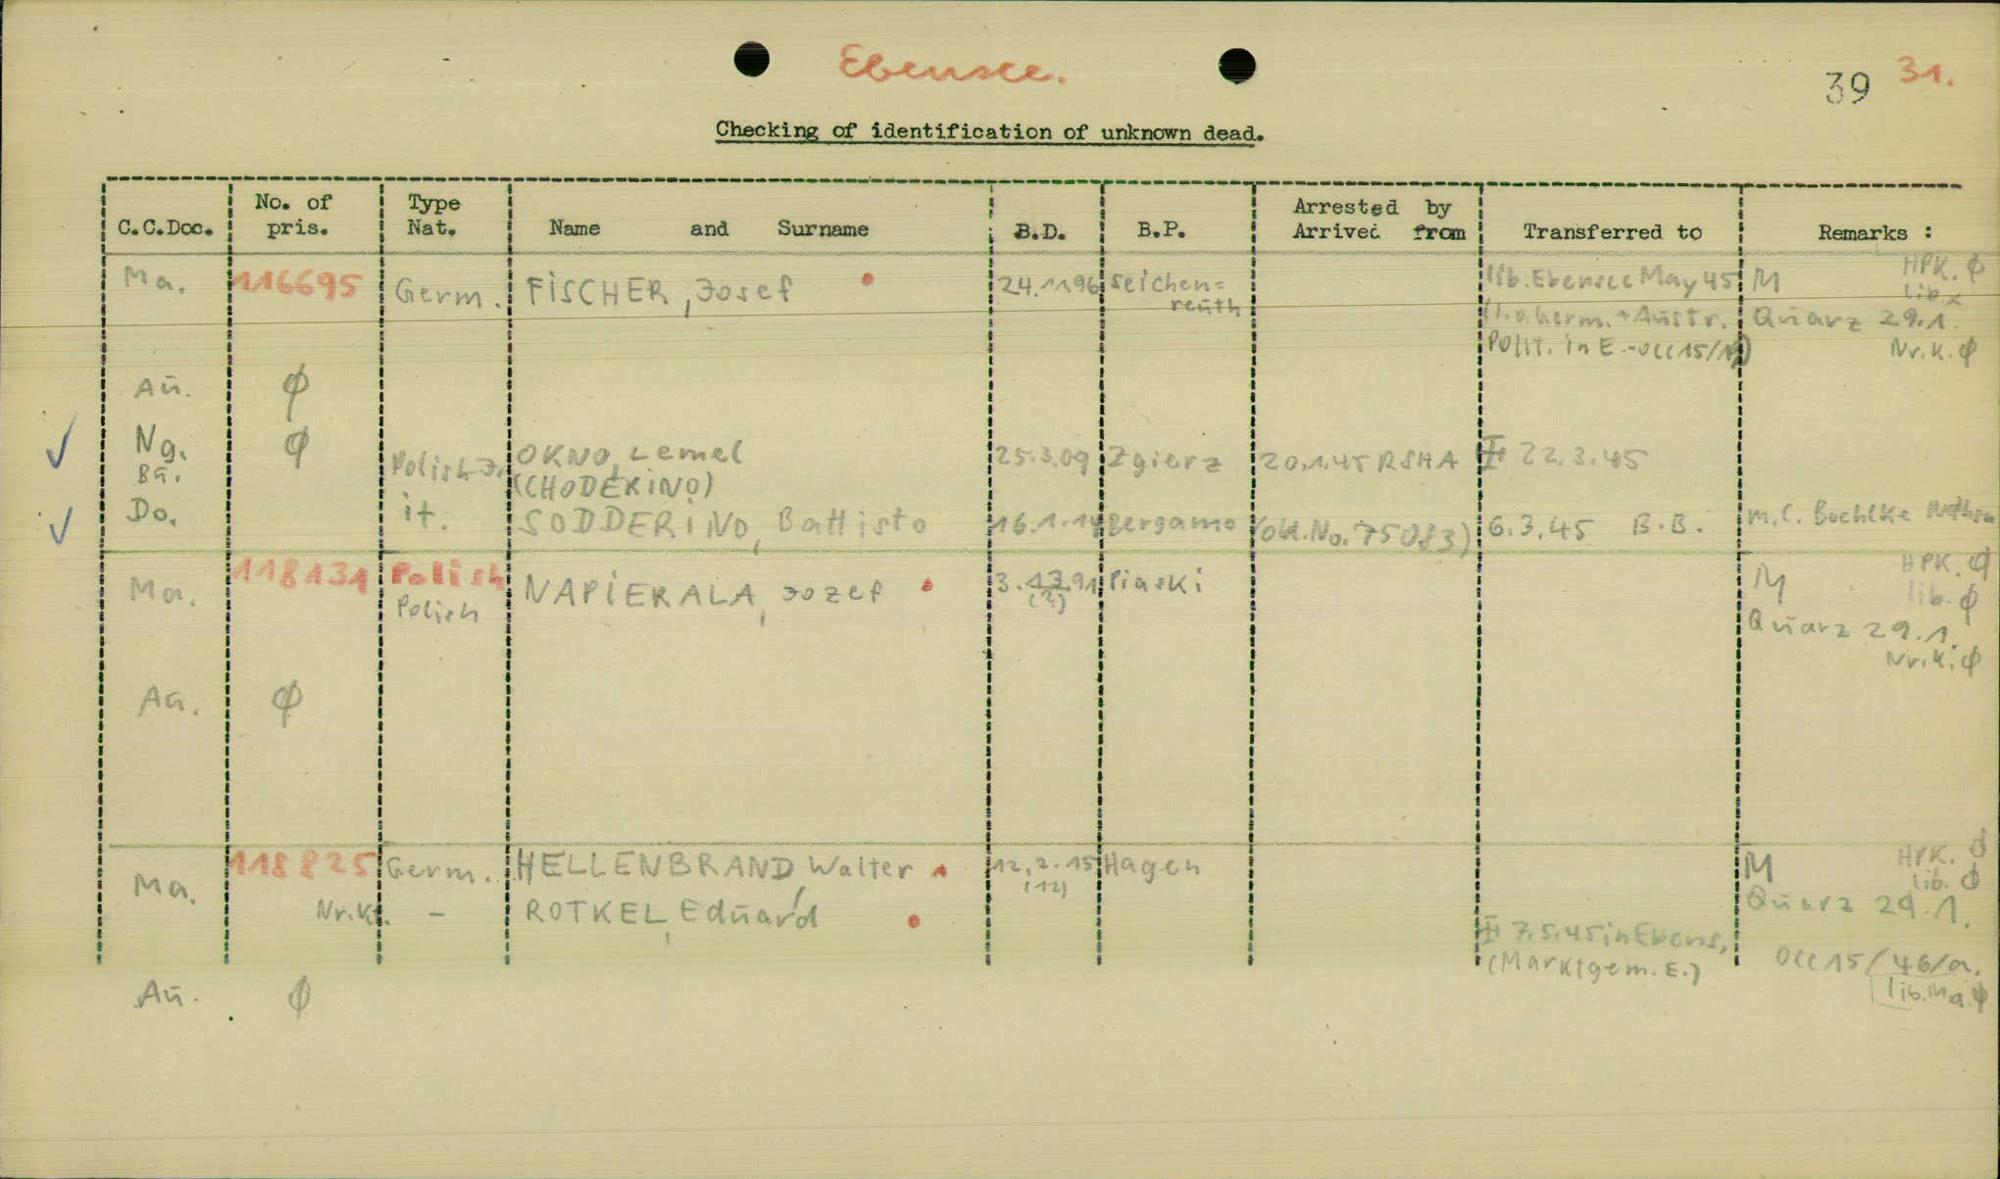 Ebensee.
39 31.
Checking of identification of unknown dead.
C.C.Doc. No. of pris. Type Nat. Name and Surname B.D. B.P. Arrested by Arrived from Transferred to Remarks :
Ma. 116695 Germ. FISCHER, Josef 24.11.96 Seichen= lib. Ebensee May 45 M HPK. ϕ
reuth lib x
Germ. + Austr. Quarz 29.1.
Polit. in E. - OCC 15/ Nr.K. ϕ
Aū. ϕ
Ng. ϕ
Bū. Polish J. OKNO, Lemel 25.3.09 Zgierz 20.1.45 RSHA 22.3.45
(CHODEKINO)
Do. it. SODDERINO, Battisto 16.1.14 Bergamo (old.No. 75083) 6.3.45 B.B. m.C. Boehlke
Ma. 118131 Polish NAPIERALA, Jozef 3. 91 Piaski M HPK. ϕ
Polish (2) lib. ϕ
Quarz 29.1.
Nr.K. ϕ
Aū. ϕ
Ma. 118825 Germ. HELLENBRAND, Walter 12.2.15 Hagen M HPK. ϕ
(12) lib. ϕ
Quarz 29.1.
Nr.Kt. - ROTKEL, Eduard
7.5.45 in Ebens.
(Marktgem. E.) OCC 15/46/a.
Aū. ϕ lib. Ma. ϕ